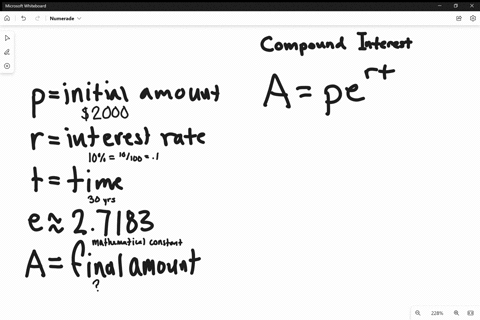 Microsoft Whiteboard
Numerade
Compound Interest
A = pe^rt
p = initial amount
$2000
r = interest rate
10% = 10/100 = .1
t = time
30 yrs
e ≈ 2.7183
mathematical constant
A = final amount
?
228%